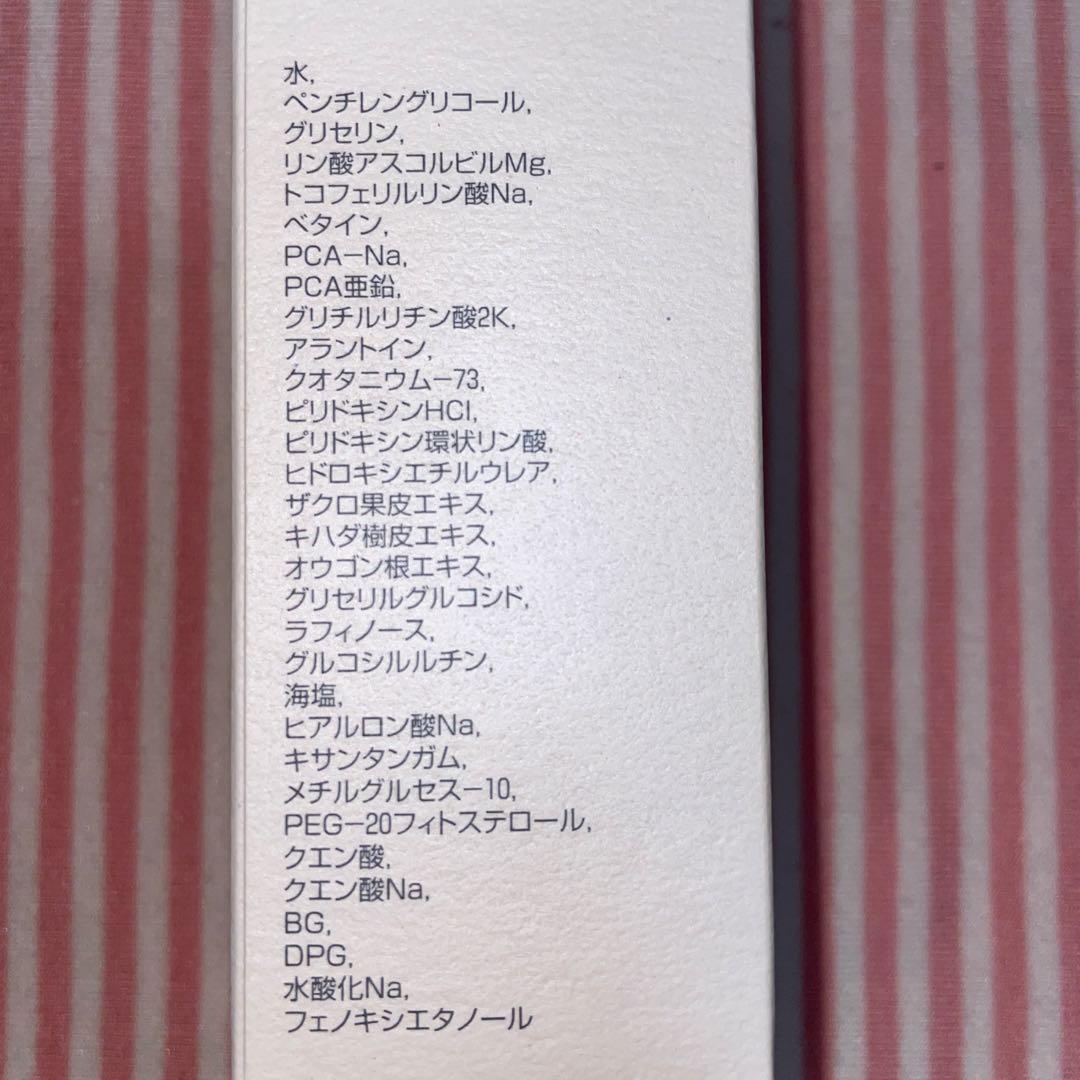 水,
ペンチレングリコール,
グリセリン,
リン酸アスコルビルMg,
トコフェリルリン酸Na,
ベタイン,
PCA−Na,
PCA亜鉛,
グリチルリチン酸2K,
アラントイン,
クオタニウム−73,
ピリドキシンHCl,
ピリドキシン環状リン酸,
ヒドロキシエチルウレア,
ザクロ果皮エキス,
キハダ樹皮エキス,
オウゴン根エキス,
グリセリルグルコシド,
ラフィノース,
グルコシルルチン,
海塩,
ヒアルロン酸Na,
キサンタンガム,
メチルグルセス−10,
PEG−20フィトステロール,
クエン酸,
クエン酸Na,
BG,
DPG,
水酸化Na,
フェノキシエタノール